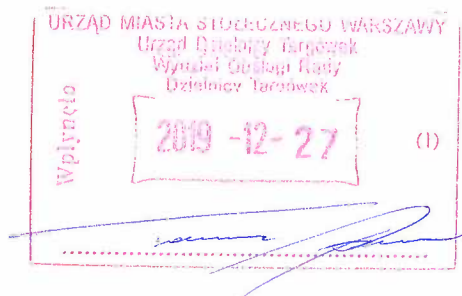 URZĄD MIASTA STOŁECZNEGO WARSZAWY
Urząd Dzielnicy Targówek
Wydział Obsługi Rady
Dzielnicy Targówek
Wpłynęło
2019 -12- 27
(1)